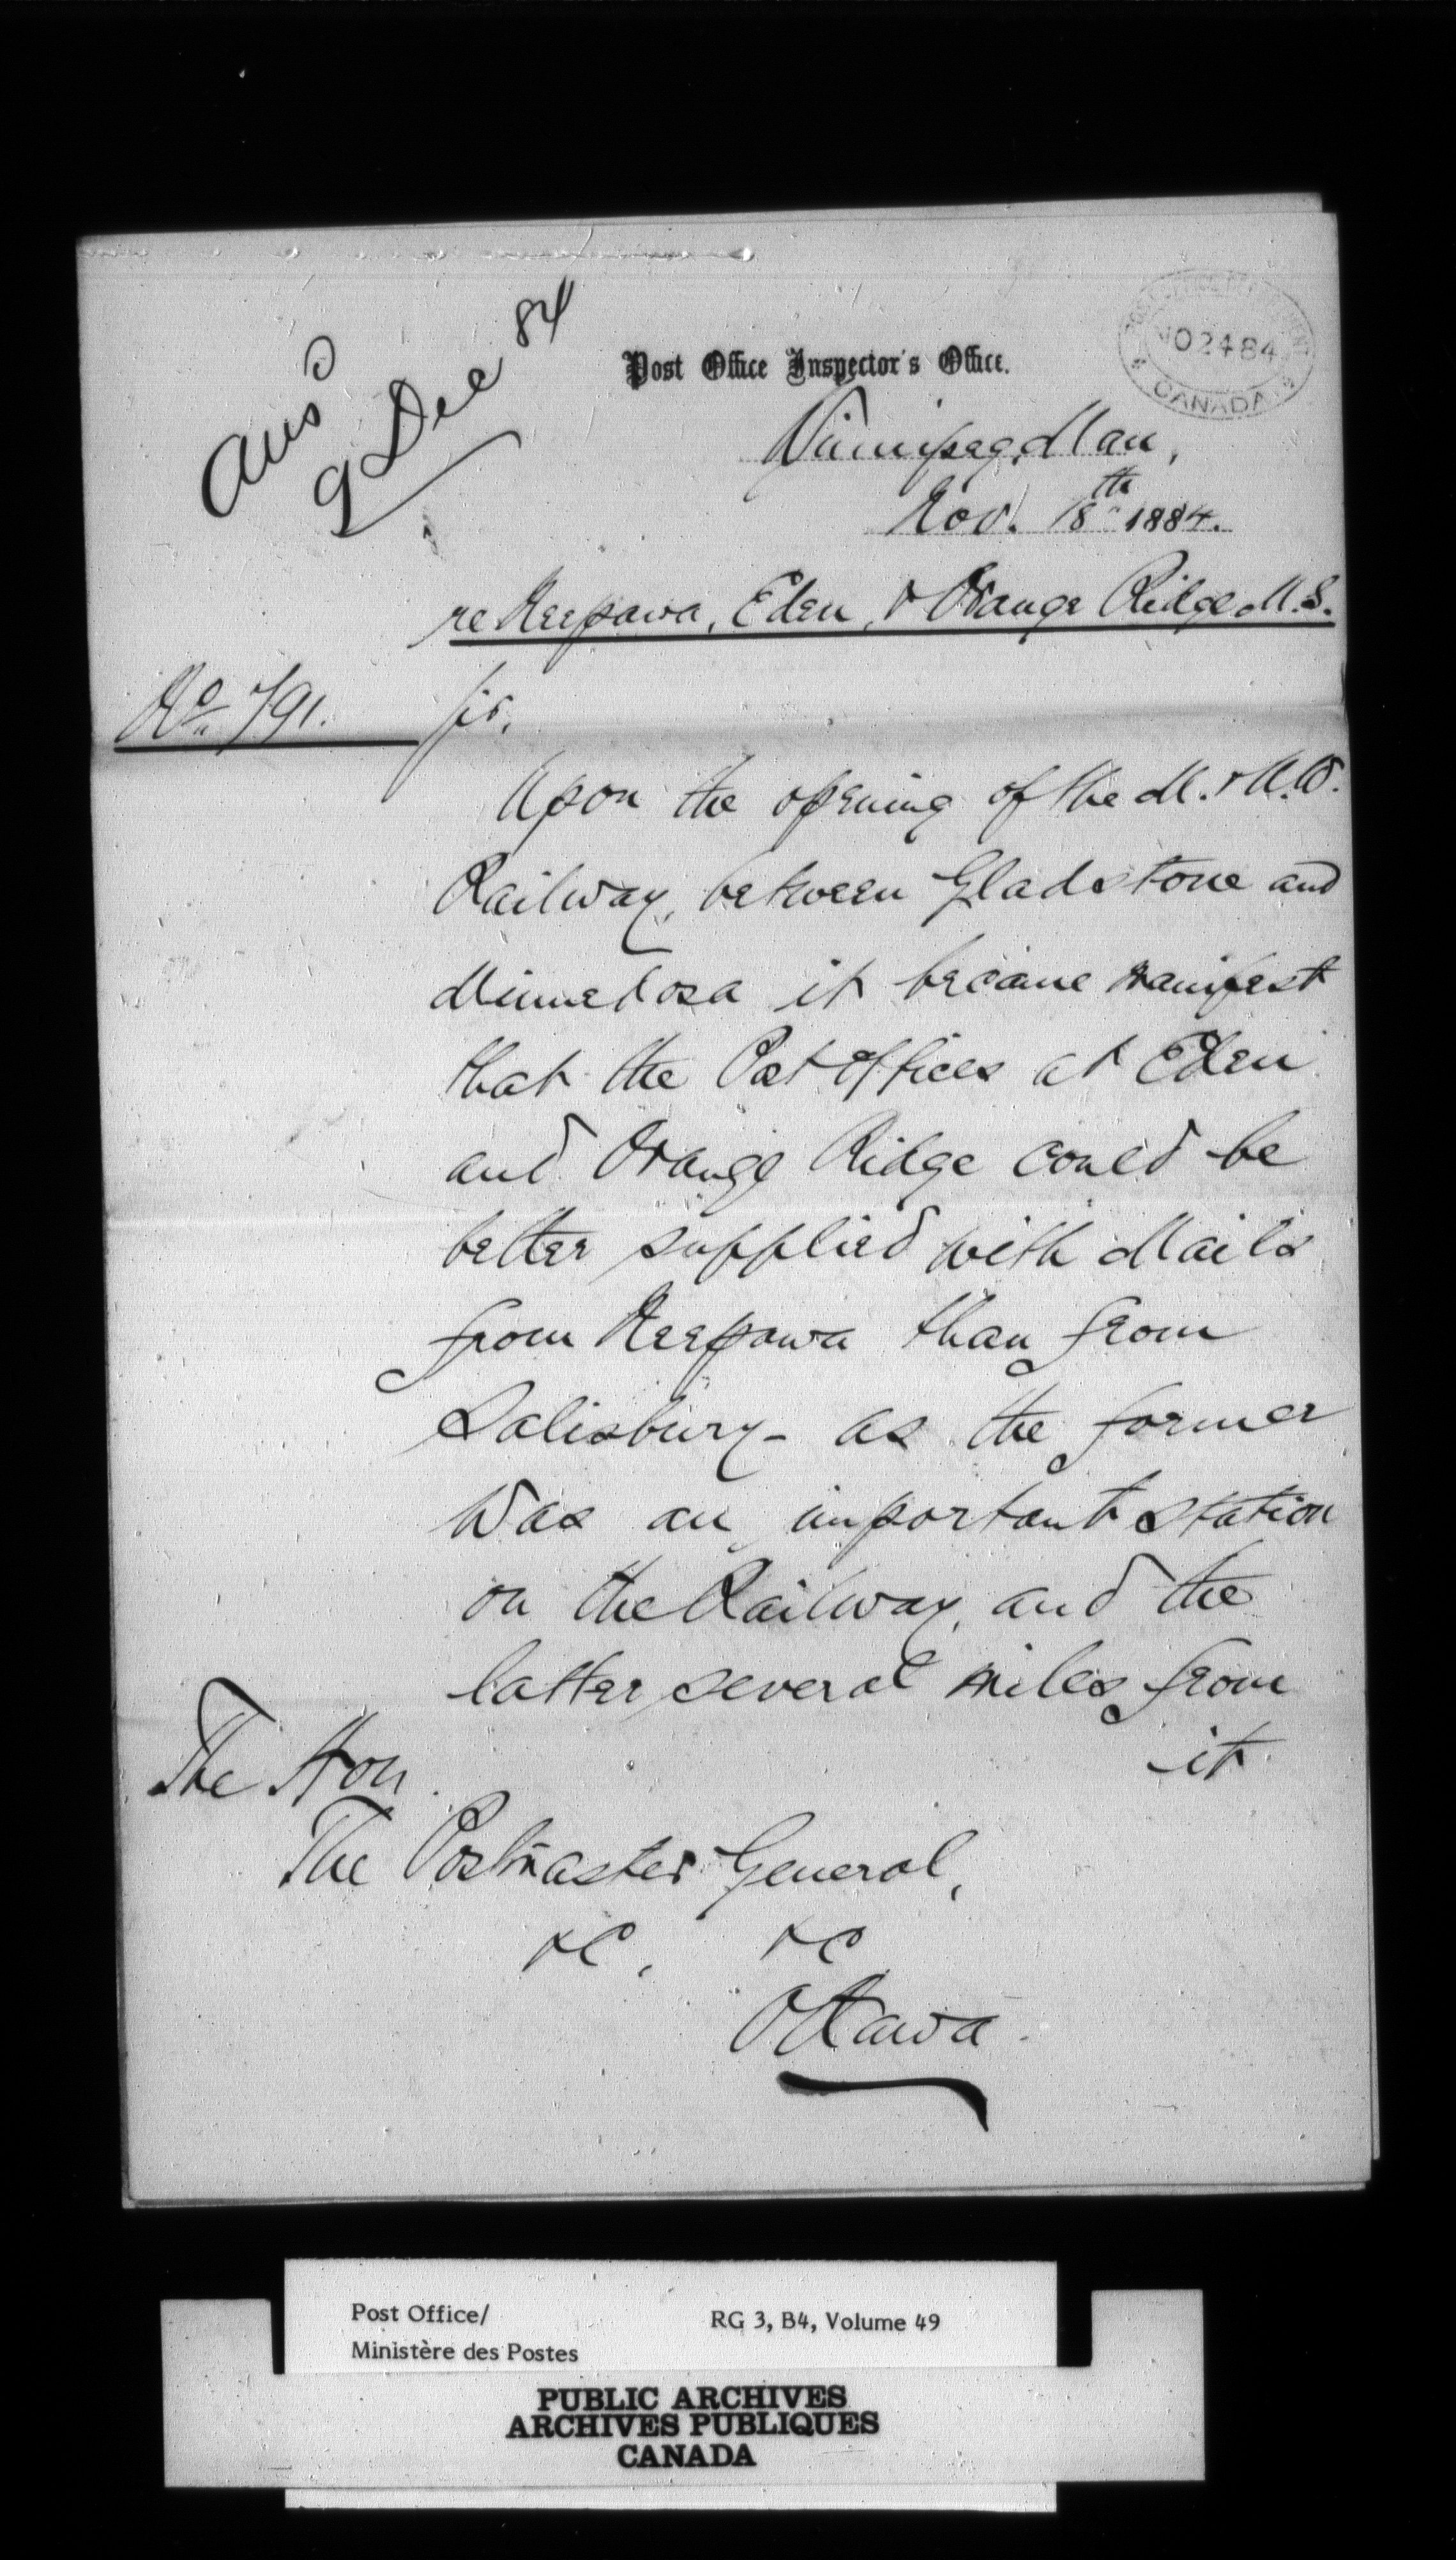 Ansd
9 Dec 84
Post Office Inspector's Office.
POST OFFICE DEPARTMENT
NO 24 84
CANADA
Winnipeg, Man,
Nov. 18th 1884.
re Neepawa, Eden, & Orange Ridge M.S.
No 791.
Sir,
Upon the opening of the M. & N.W.
Railway, between Gladstone and
Minnedosa it became manifest
that the Post Offices at Eden
and Orange Ridge could be
better supplied with Mails
from Neepawa than from
Salisbury - as the former
was an important station
on the Railway, and the
latter several miles from
it
The Hon.
The Postmaster General,
&c, &c
Ottawa.
Post Office/
Ministère des Postes
RG 3, B4, Volume 49
PUBLIC ARCHIVES
ARCHIVES PUBLIQUES
CANADA